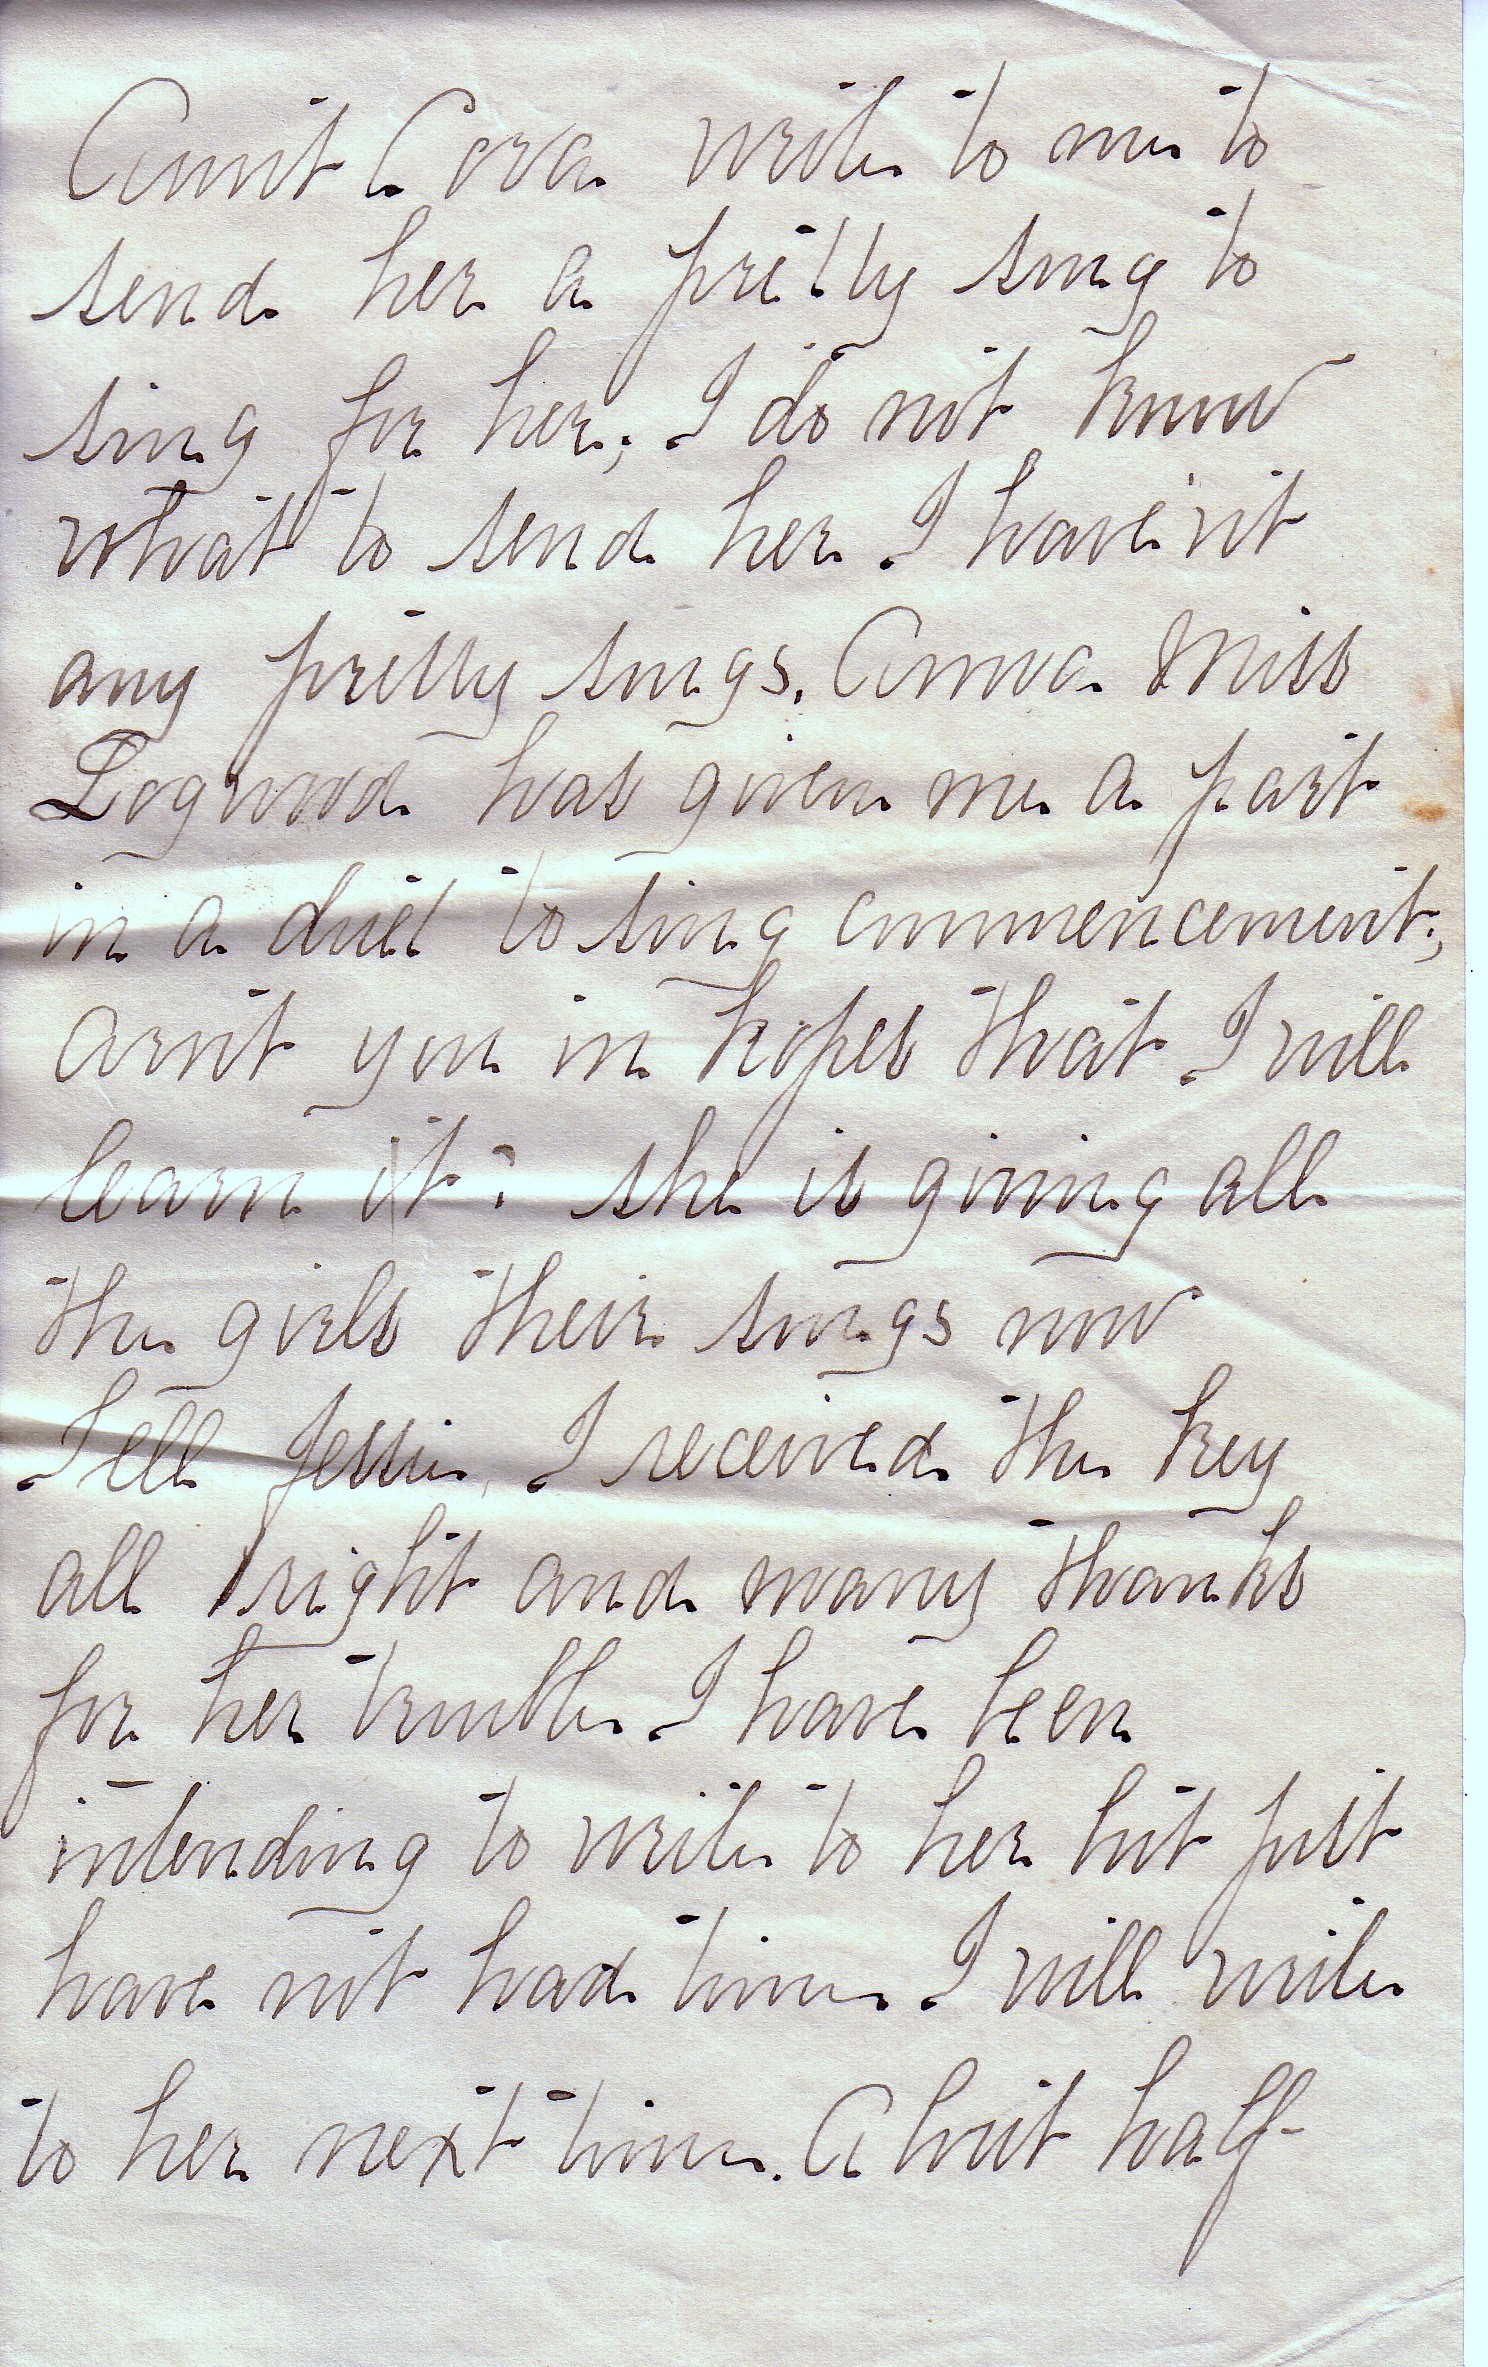 Aunt Cora write to me to
send her a pretty song to
sing for her; I do not know
what to send her I have'nt
any pretty songs. Anna Miss
Logwood has given me a part
in a duet to sing commencement;
arn't you in hopes that I will
learn it? she is giving all
the girls their songs now
Tell Jessie, I received the key
all right and many thanks
for her trouble I have been
intending to write to her but just
have not had time I will write
to her next time. About half